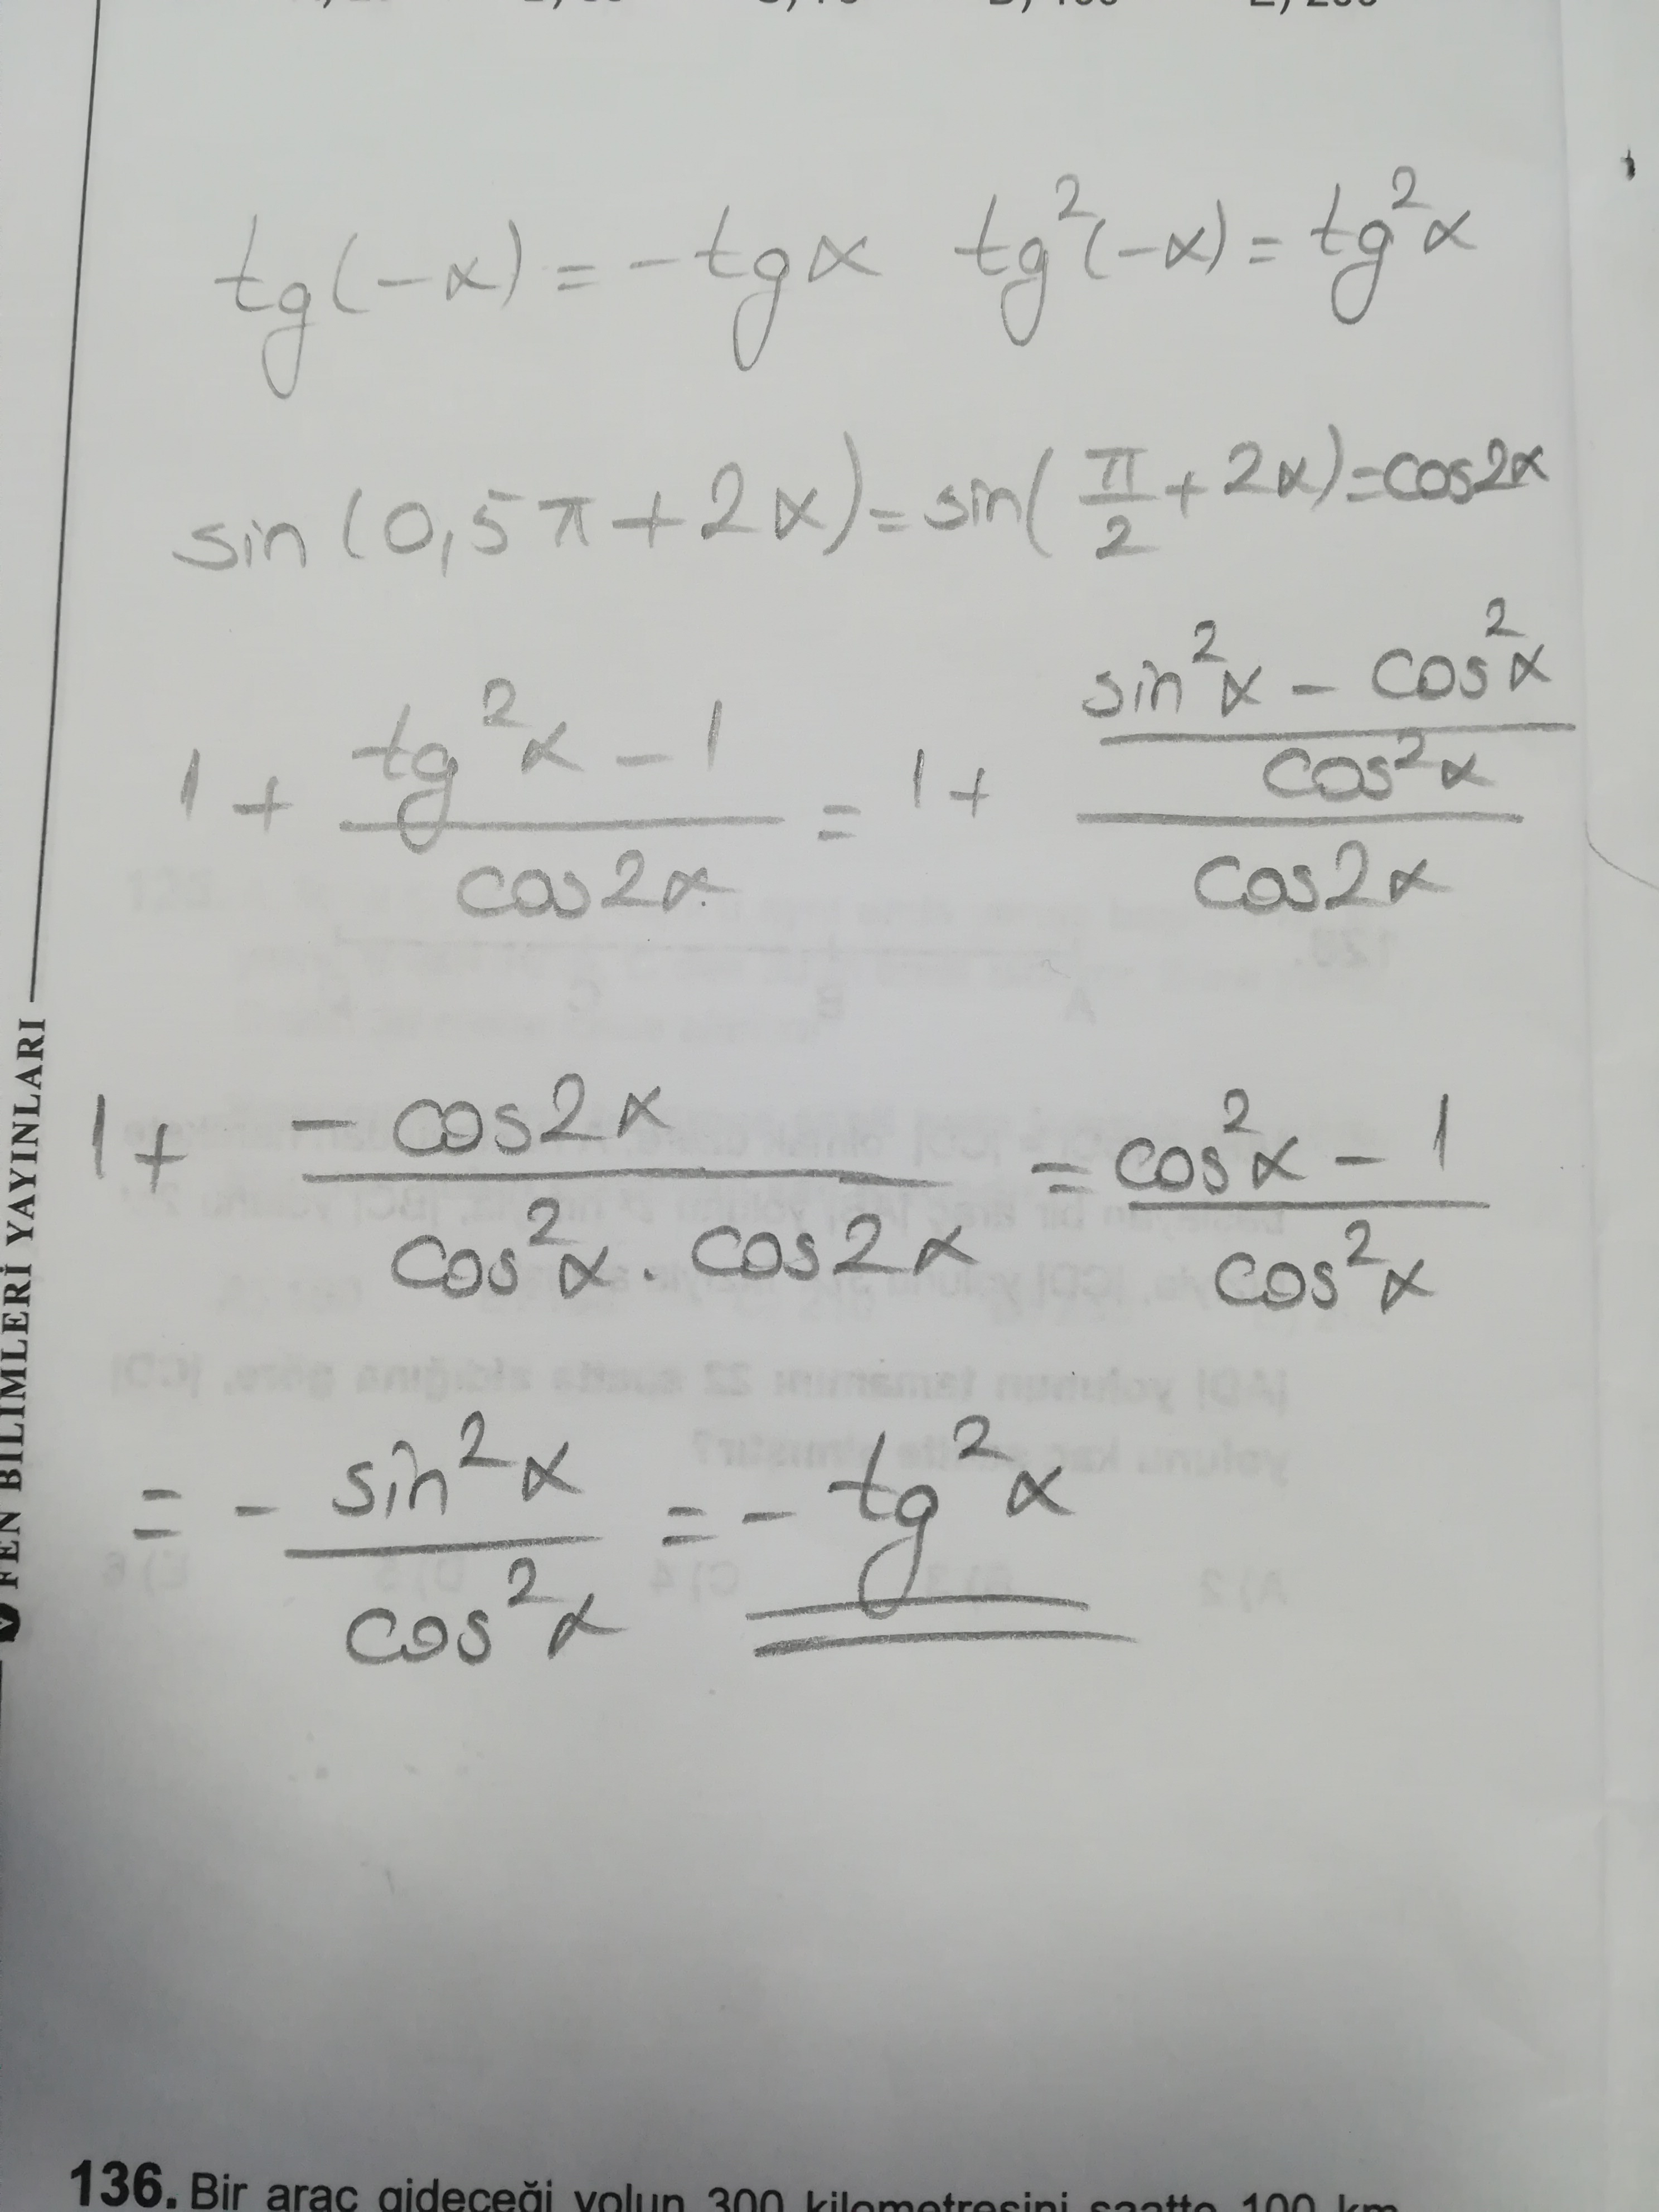 tg(-α) = -tgα tg²(-α) = tg²α
sin(0,5π+2α) = sin(π/2+2α) = cos2α
1 + (tg²α - 1)/(cos2α) = 1 + ((sin²α - cos²α)/(cos²α))/(cos2α)
1 + (-cos2α)/(cos²α . cos2α) = (cos²α - 1)/(cos²α)
= - (sin²α)/(cos²α) = - tg²α
FEN BİLİMLERİ YAYINLARI
136. Bir araç gideceği yolun 300 kilometresini saatte 100 km